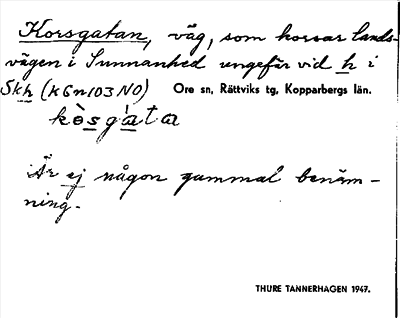 Korsgatan, väg, som korsar lands-
vägen i Sunnanhed ungefär vid h i
Skh (KGn103NO) Ore sn, Rättviks tg, Kopparbergs län.
kò̀sgàta
Är ej någon gammal benäm-
ning.
THURE TANNERHAGEN 1947.